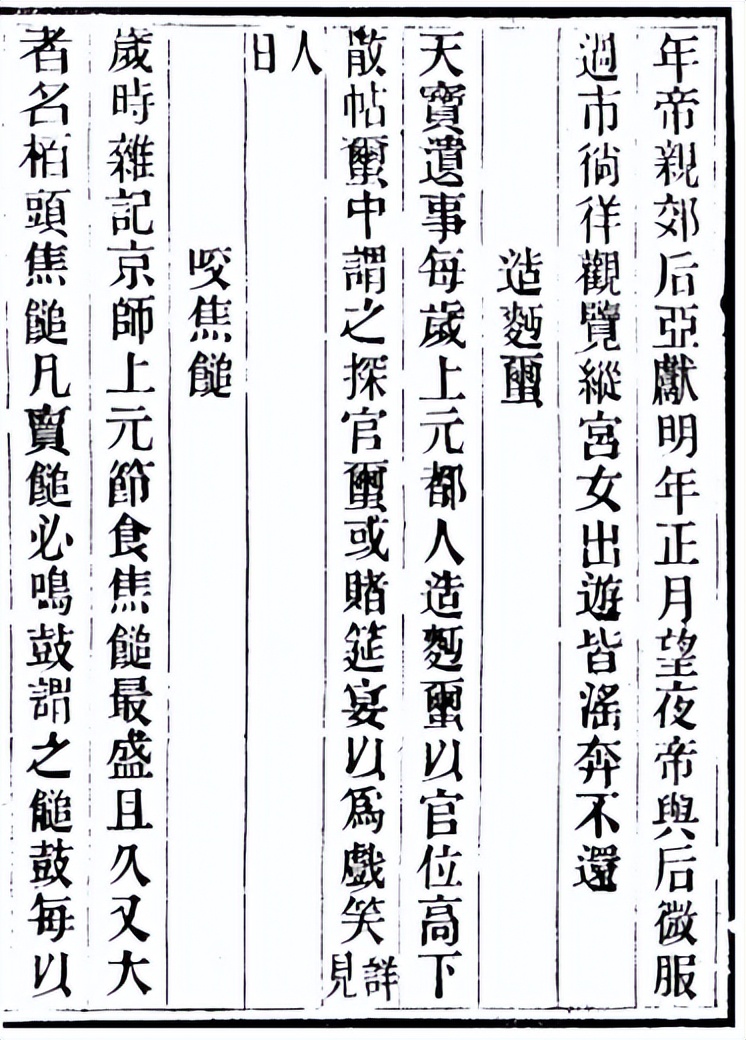 年帝親郊后亞獻明年正月望夜帝與后微服
過市徜徉觀覽縱宮女出遊皆滛奔不還
造麫蠒
天寶遺事每歲上元都人造麫蠒以官位高下
散帖蠒中謂之探官蠒或賭筵宴以爲戲笑詳見
人日
咬焦䭔
歲時雜記京師上元節食焦䭔最盛且久又大
者名柏頭焦䭔凡賣䭔必鳴鼓謂之䭔鼓每以